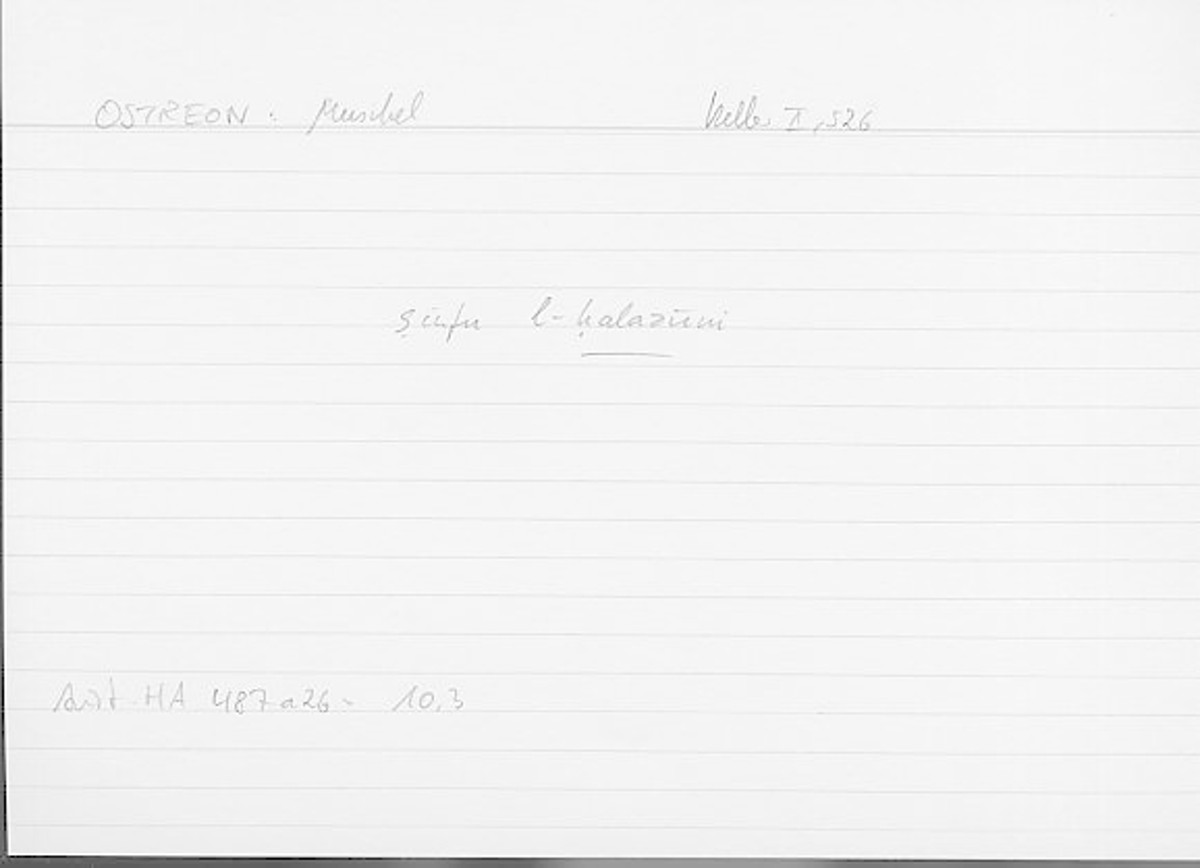 OSTREON : Muschel Keller II, 526
ṣinfu l-ḥalazūni
Arist. HA 487a26 - 10,3